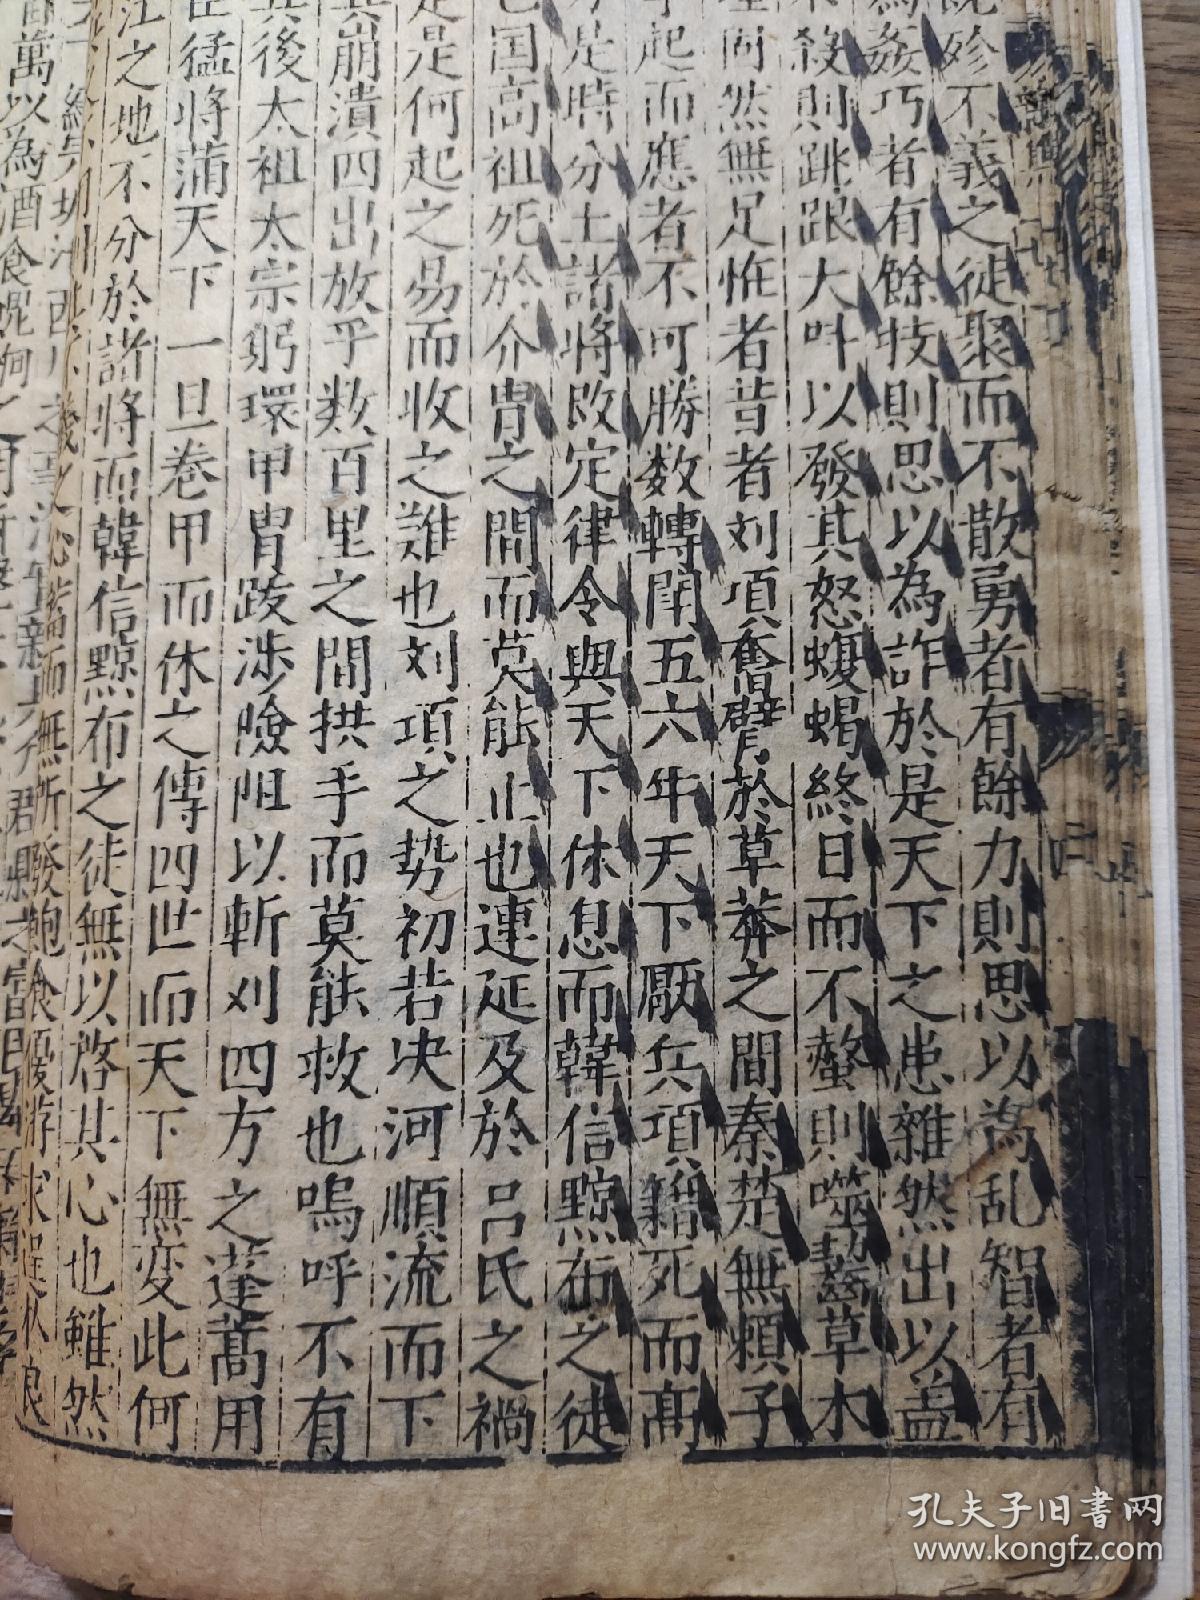 殄不義之徒聚而不散勇者有餘力則思以為乱智者有
為姦巧者有餘技則思以為詐於是天下之患雜然出以盖
殺則跳踉大叶以發其怒蝮蝎終日而不螫則噬齧草木
固然無足恠者昔者刘項奮臂於草莽之間秦楚無頼子
起而應者不可勝数轉鬪五六年天下厭兵項籍死而髙
是時分土諸將改定律令與天下休息而韓信黥布之徒
国高祖死於介胄之間而莫能止也連延及於吕氏之禍
是何起之易而收之難也刘項之势初若决河順流而下
崩潰四出放乎数百里之間拱手而莫能救也嗚呼不有
後太祖太宗躬環甲胄跋涉險阻以斬刈四方之蓬蒿用
臣猛將滿天下一旦卷甲而休之傳四世而天下無变此何
江之地不分於諸將而韓信黥布之徒無以啓其心也雖然
義之心常而無所發飽食優游求逞於良
孔夫子旧书网
www.kongfz.com